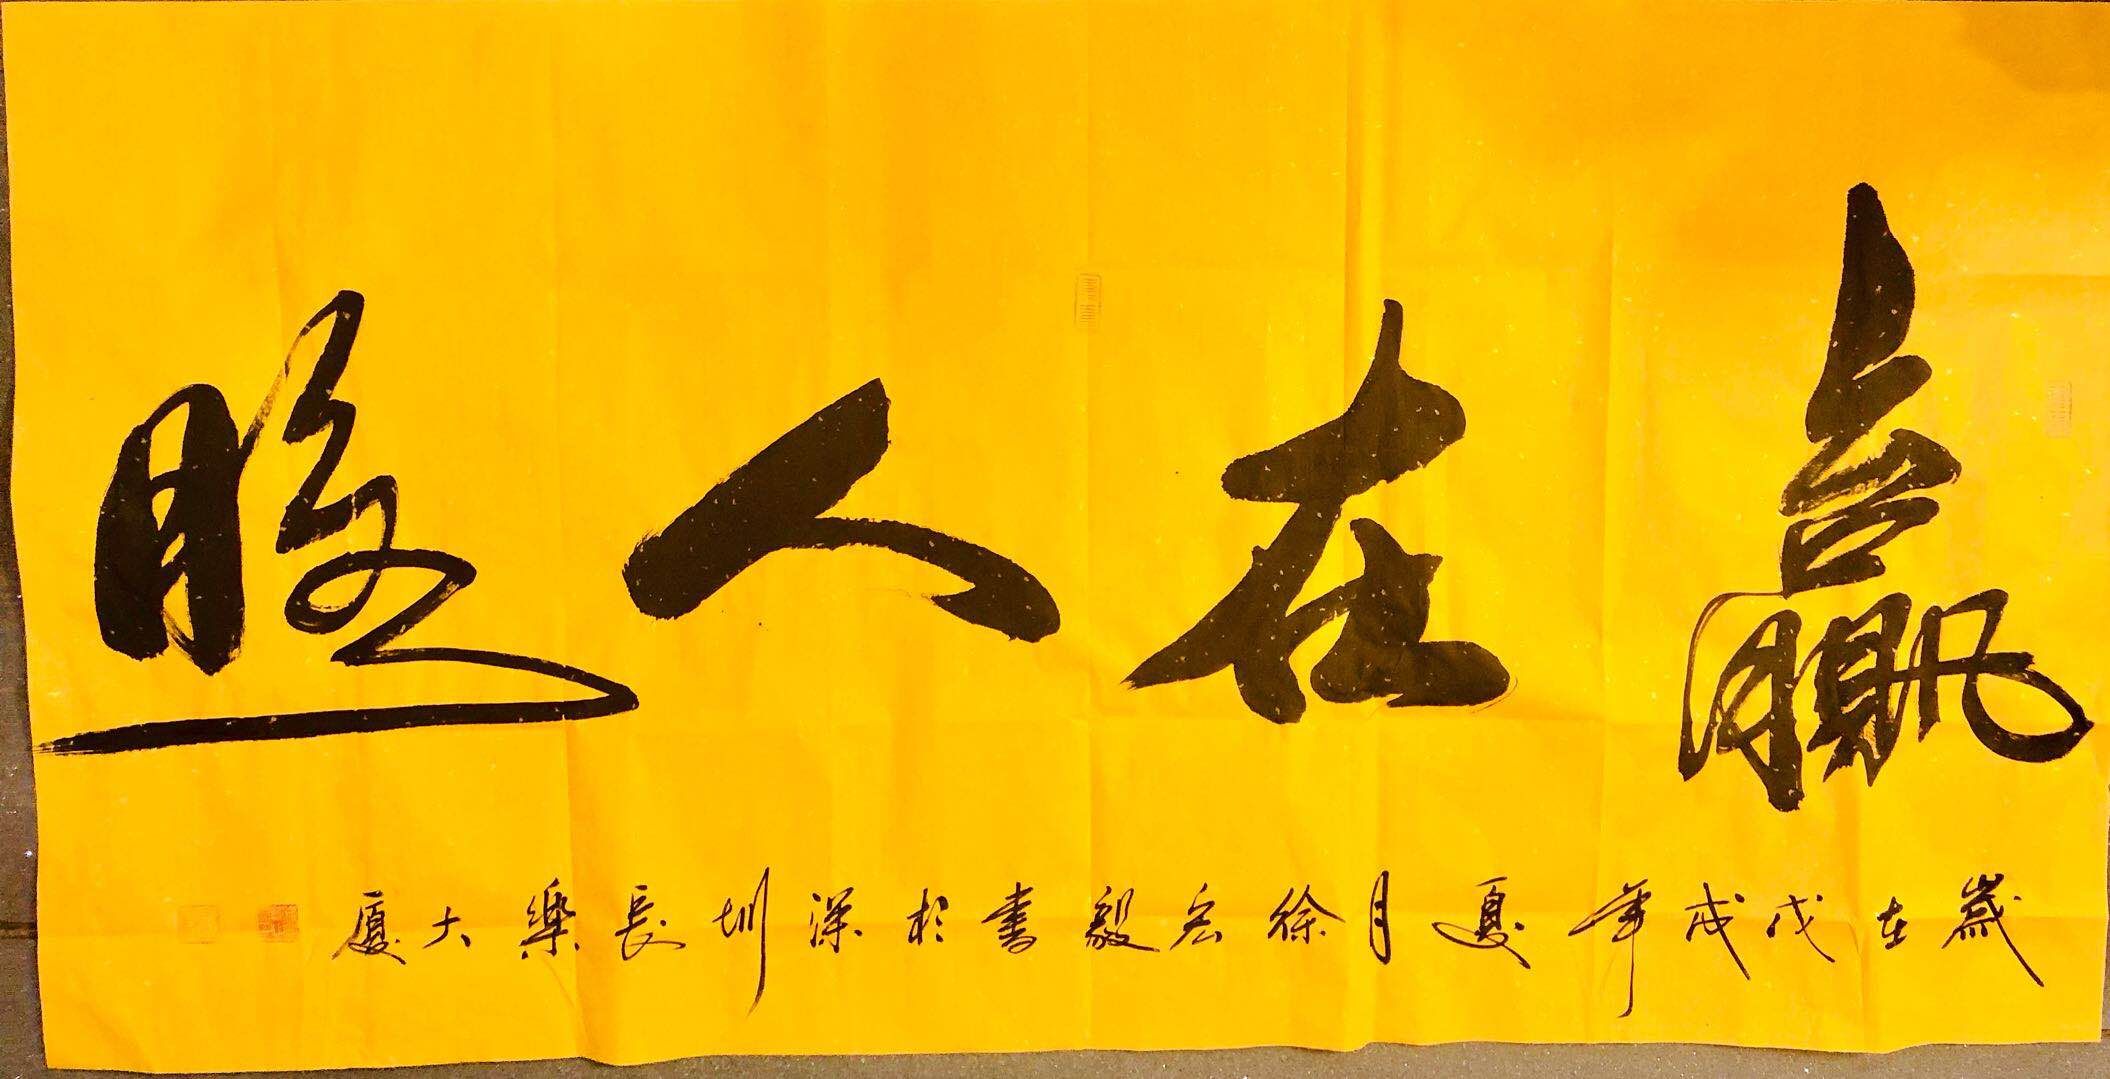 贏在人脉
歲在戊戌年夏月徐宏毅書於深圳長樂大廈